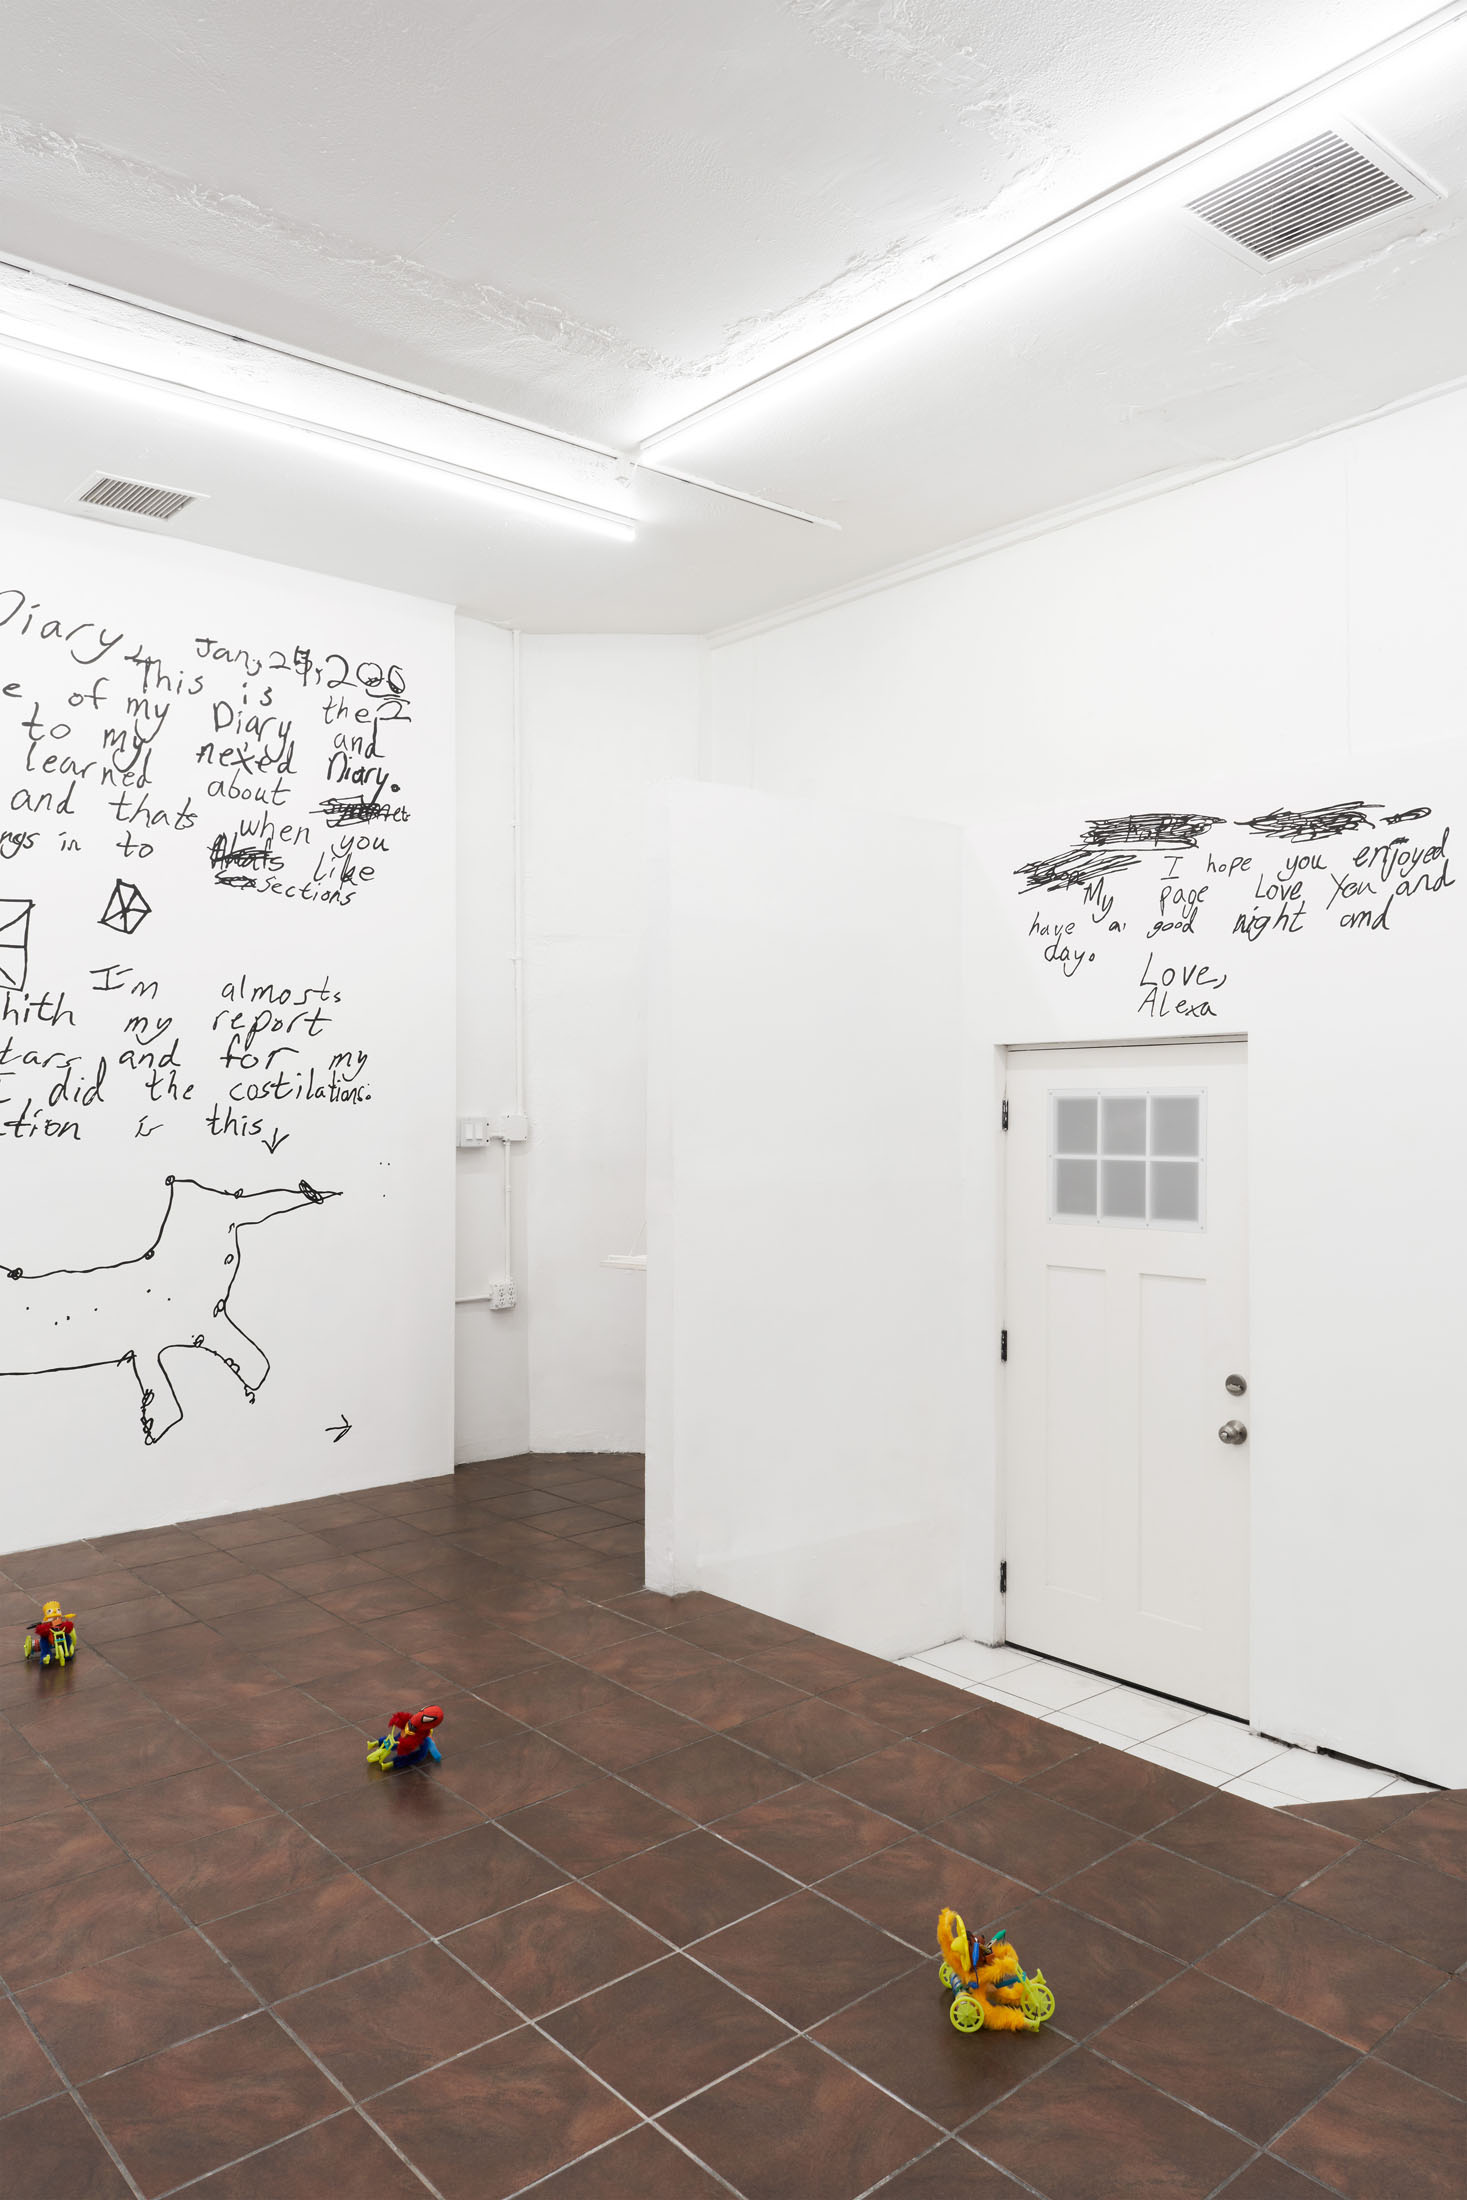 Diary, Jan, 24, 2002
This is the
e of my Diary and
to my nexed Diary.
learned about
and thats when you
ngs in to like
sections
I'm almosts
hith my report
tars and for my
I did the costilations.
ction is this
I hope you enjoyed
My page Love You and
have a good night and
day.
Love,
Alexa